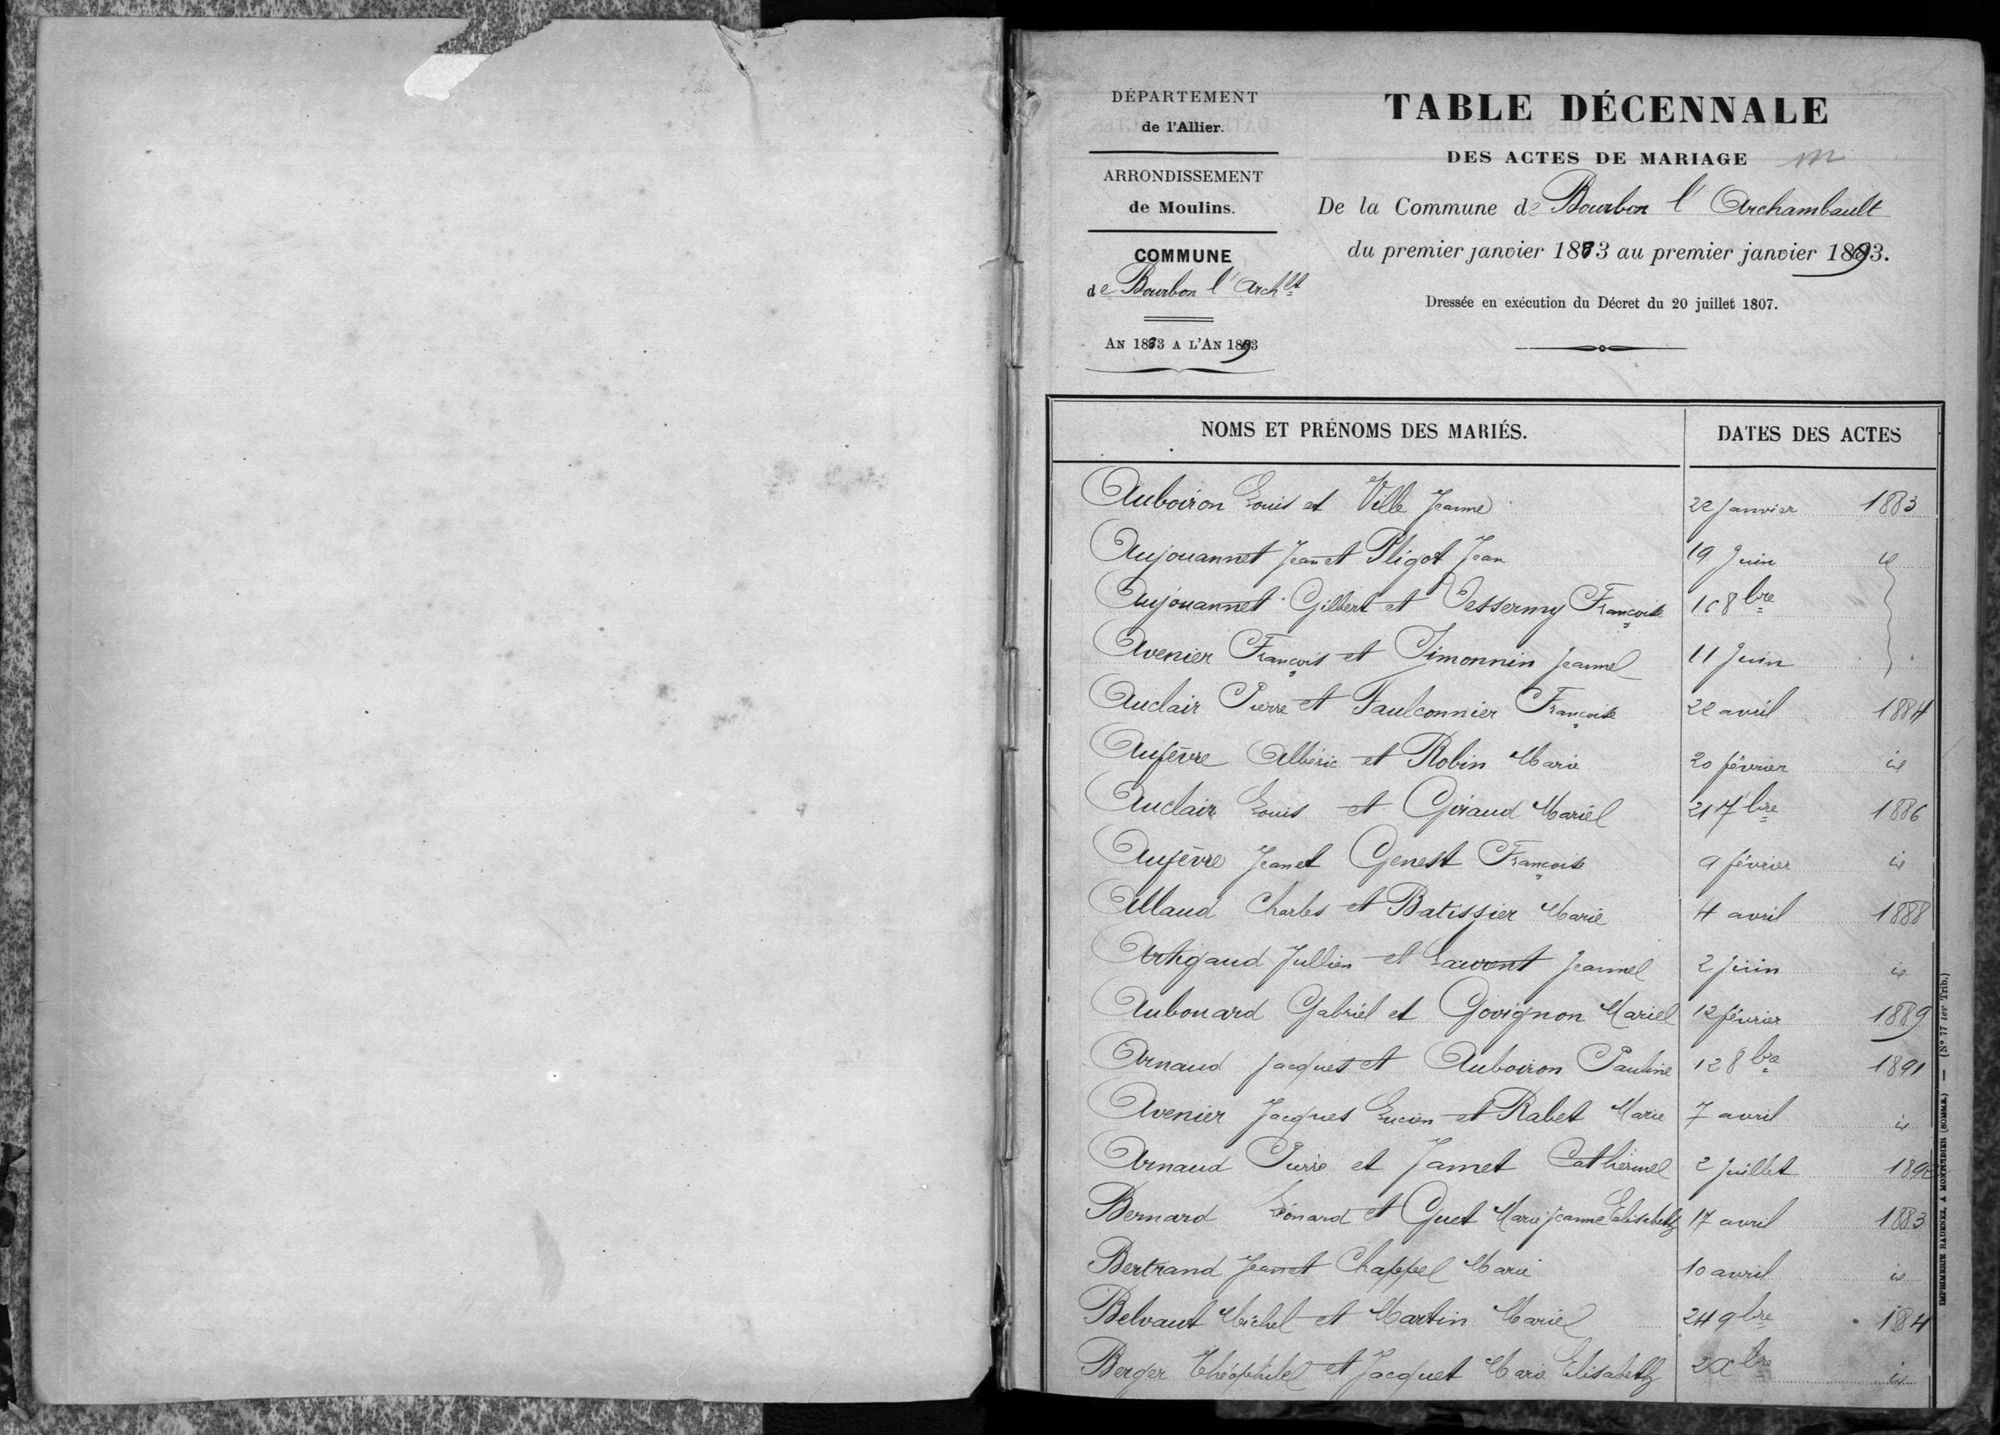 DÉPARTEMENT
de l'Allier.
ARRONDISSEMENT
de Moulins.
COMMUNE
de Bourbon l'Arch^lt
AN 1883 A L'AN 1893
TABLE DÉCENNALE
DES ACTES DE MARIAGE m
De la Commune de Bourbon l'Archambault
du premier janvier 1883 au premier janvier 1893.
Dressée en exécution du Décret du 20 juillet 1807.
NOMS ET PRÉNOMS DES MARIÉS. DATES DES ACTES
Auboiron Louis et Ville Jeanne 22 janvier 1883
Aujouannet Jean et Pligot Jean 19 Juin id
Aujouannet Gilbert et Vessermy Françoise 16 8bre
Avenier François et Simonnin Jeanne 11 Juin
Auclair Pierre et Faulconnier Françoise 22 avril 1884
Aufèvre Albéric et Robin Marie 20 février id
Auclair Louis et Giraud Marie 21 7bre 1886
Aufèvre Jean et Genest Françoise 9 février id
Allaud Charles et Batissier Marie 4 avril 1888
Artigaud Jullien et Laurent Jeanne 2 juin id
Aubouard Gabriel et Govignon Marie 12 février 1889
Arnaud Jacques et Auboiron Pauline 12 8bre 1891
Avenier Jacques Lucien et Rabet Marie 7 avril id
Arnaud Pierre et Jamet Catherine 2 juillet 1892
Bernard Léonard et Guet Marie Jeanne Elisabeth 17 avril 1883
Bertrand Jean et Chappel Marie 10 avril id
Belvaut Michel et Martin Marie 24 9bre 1884
Berger Théophile et Jacquet Marie Elisabeth 2 Xbre id
IMPRIMERIE RADENEZ, A MONTDIDIER (SOMME). — (N° 77 ter Trib.)